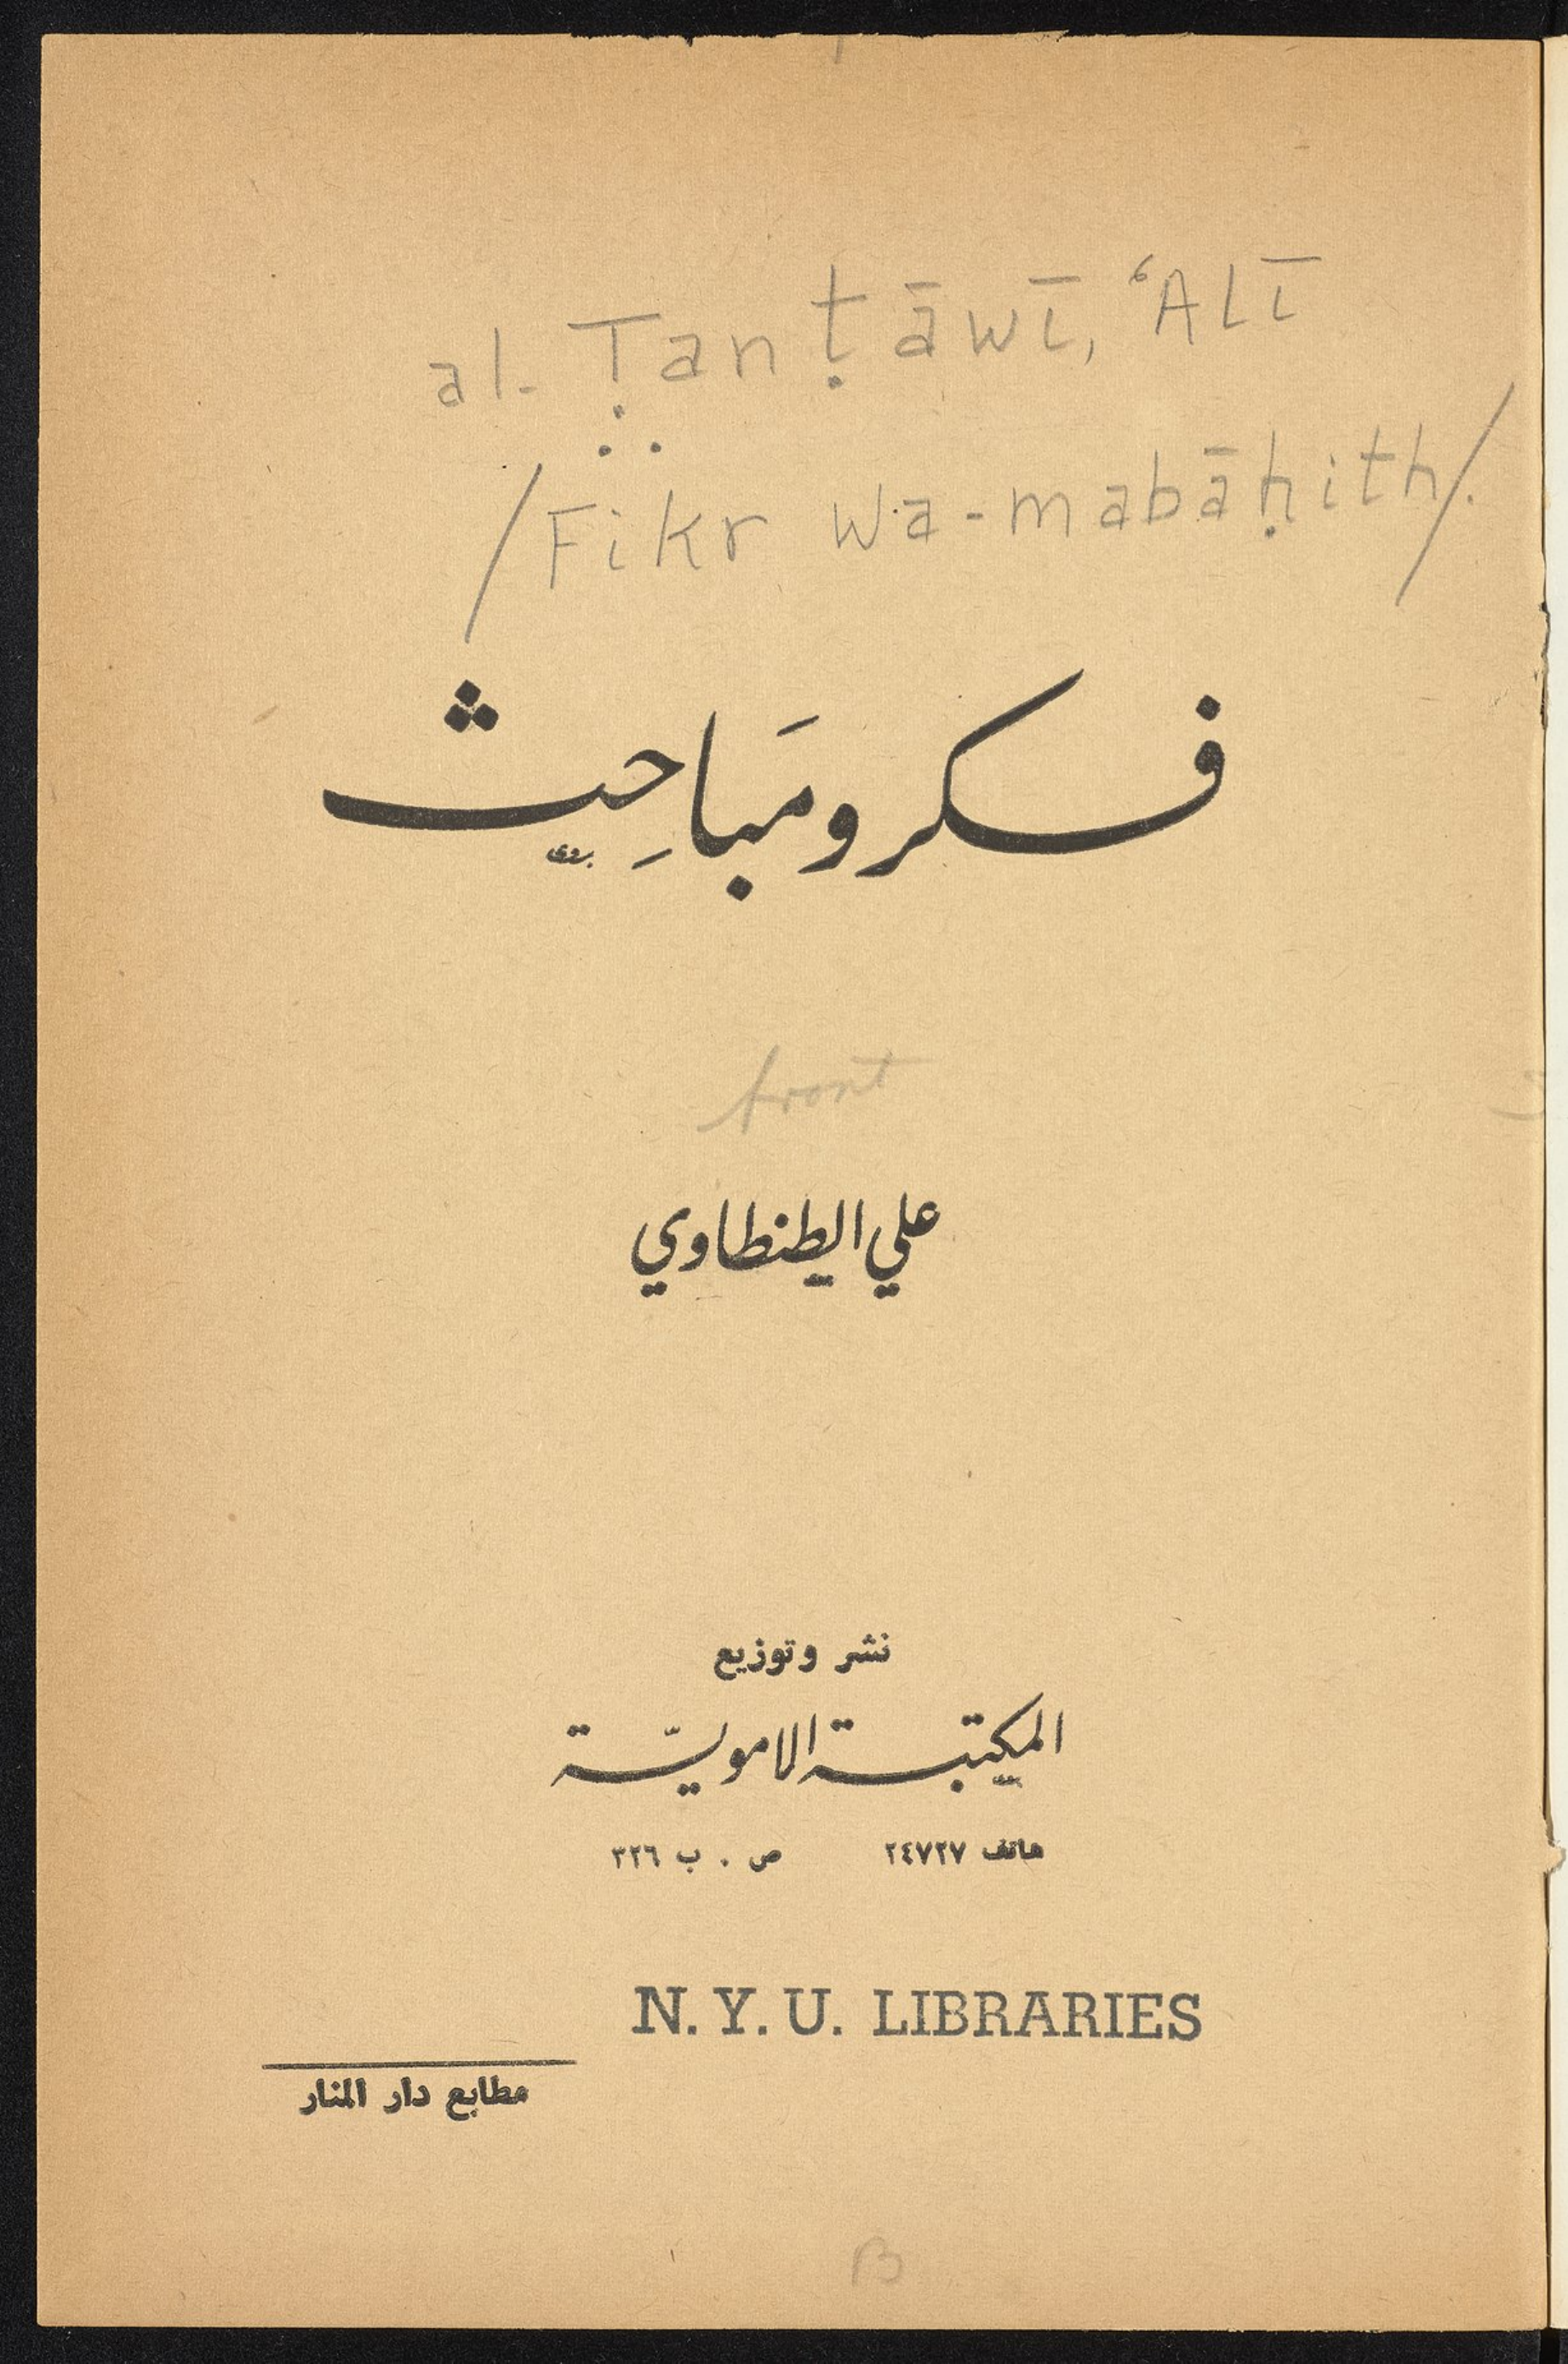 al-Ṭanṭāwī, ʿAlī
/Fikr wa-mabāḥith/.
فكر ومَباحِث
front
علي الطنطاوي
نشر وتوزيع
المكتبة الامويّة
هاتف ٢٤٧٢٧ ص . ب ٣٢٦
N. Y. U. LIBRARIES
مطابع دار المنار
B